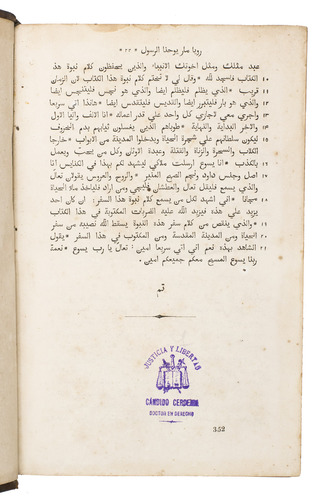 رويا مار يوحنا الرسول * ٢٢ *
عبد مثلك ومثل اخوتك الانبيا والذين يحفظون كلام نبوة هذ
١٠ الكتاب فاسجد لله * وقال لي لا تختم كلام نبوة هذا الكتاب لان الزمان
١١ قريب * الذي يظلم فليظلم ايضا والذي هو نجس فليتنجس ايضا
١٢ والذي هو بار فليتبرر ايضا والقديس فليتقدس ايضا * هانذا اتي سريعا
١٣ واجري معي لاجازي كل واحد علي قدر اعماله * انا الالف واليا الاول
١٤ والاخر البداية والنهاية * طوباهم الذين يغسلون ثيابهم بدم الخروف
١٥ ليكون سلطانهم علي شجرة الحياة ويدخلوا المدينة من الابواب * خارجا
الكلاب والسحرة والزناة والقتلة وعبدة الاوثان وكل من يحب ويعمل
١٦ بالكذب * انا يسوع ارسلت ملاكي ليشهد لكم بهذا في الكنايس انا
١٧ اصل وجنس داود ونجم الصبح المنير * والروح والعروس يقولان تعال
والذي يسمع فليقل تعال والعطشان فليجي ومن اراد فلياخذ ماء الحياة
١٨ مجانا * اني اشهد لكل من يسمع كلام نبوة هذا السفر ان كل احد
يزيد علي هذه فيزيد الله عليه الضربات المكتوبة في هذا الكتاب
١٩ * والذي ينقص من كلام سفر هذه النبوة يسقط الله نصيبه من سفر
٢٠ الحياة ومن المدينة المقدسة ومن المكتوب في هذا السفر * يقول
٢١ الشاهد بهذا نعم اني اتي سريعا امين تعال يا رب يسوع * نعمة
ربنا يسوع المسيح معكم جميعكم امين.
تم
JUSTICIA Y LIBERTAD
CÁNDIDO
DOCTOR EN DERECHO
352